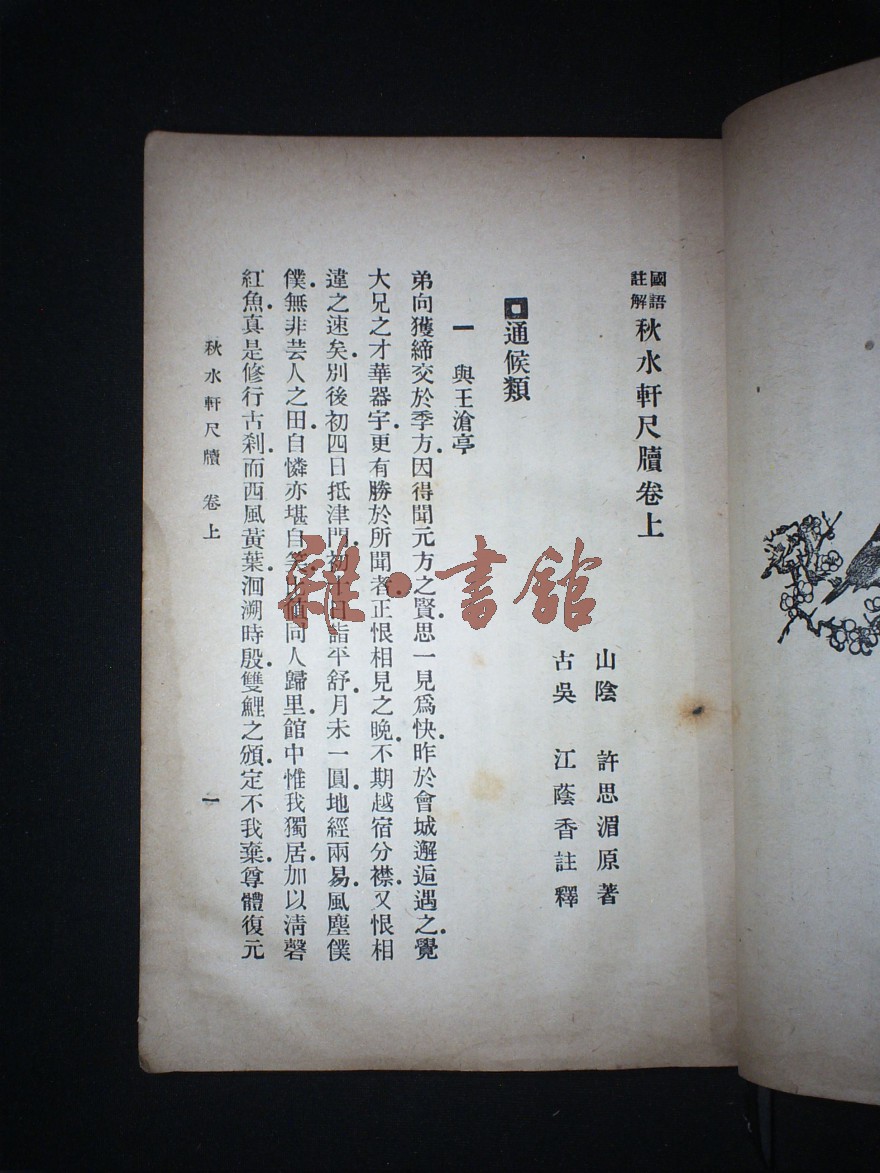 國語註解 秋水軒尺牘卷上
山陰 許思湄原著
古吳 江蔭香註釋
通候類
一 與王滄亭
弟向獲締交於季方。因得聞元方之賢。思一見爲快。昨於會城邂逅遇之。覺
大兄之才華器宇。更有勝於所聞者。正恨相見之晚。不期越宿分襟。又恨相
違之速矣。別後初四日抵津門。初十日詣平舒。月未一圓。地經兩易。風塵僕
僕。無非芸人之田。自憐亦堪自笑。值同人歸里。館中惟我獨居。加以清磬
紅魚。真是修行古刹。而西風黃葉。洄溯時殷。雙鯉之頒。定不我棄。尊體復元
秋水軒尺牘 卷上
一
雜·書館